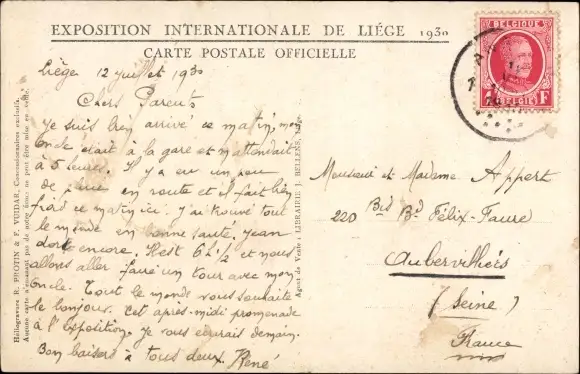 EXPOSITION INTERNATIONALE DE LIÉGE 1930
CARTE POSTALE OFFICIELLE
Liège 12 juillet 1930
Chers Parents
Je suis bien arrivé ce matin, mon
oncle était à la gare et m'attendait
à 5 heures. Il y a eu un peu
de pluie en route et il fait bien
froid ce matin ici. J'ai trouvé tout
le monde en bonne santé, Jean
dort encore. Il est 6 h 1/2 et nous
allons aller faire un tour avec mon
oncle. Tout le monde vous souhaite
le bonjour. Cet après-midi promenade
à l'exposition. Je vous écrirais demain.
Bon baisers à tous deux René
Héliogravure R. PHOTIN & F. VUIDAR, Concessionnaires exclusifs.
Aucune carte n'émanant pas de notre firme ne peut être mise en vente.
Agent de Vente : LIBRAIRIE J. BELLENS, Liége.
BELGIQUE
1 F
BELGIË
Monsieur et Madame Appert
220 Bid Bd Félix-Faure
Aubervilliers
(Seine)
France